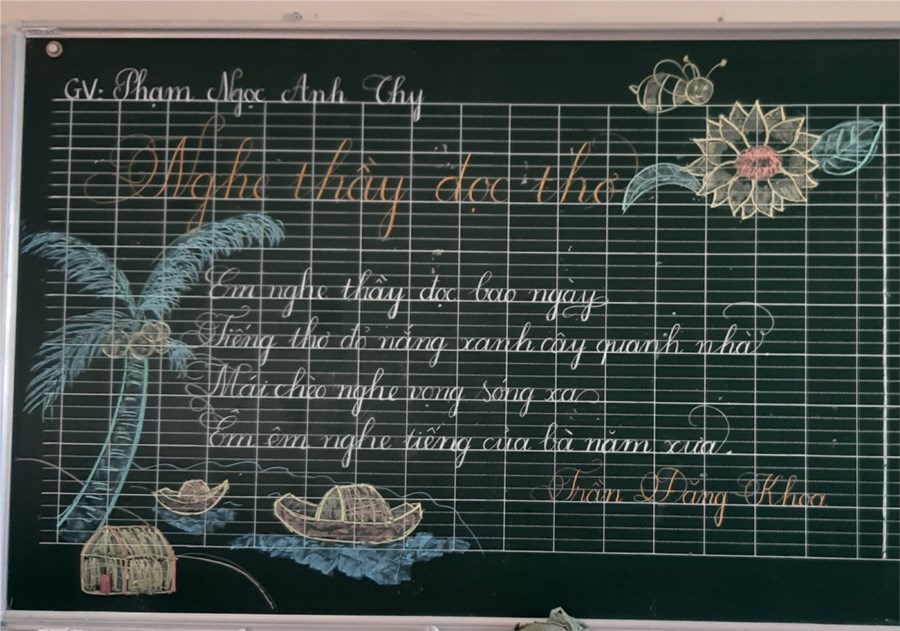 GV: Phạm Ngọc Anh Thy
Nghe thầy đọc thơ
Em nghe thầy đọc bao ngày
Tiếng thơ đỏ nắng xanh cây quanh nhà.
Mái chèo nghe vọng sông xa
Êm êm nghe tiếng của bà năm xưa.
Trần Đăng Khoa